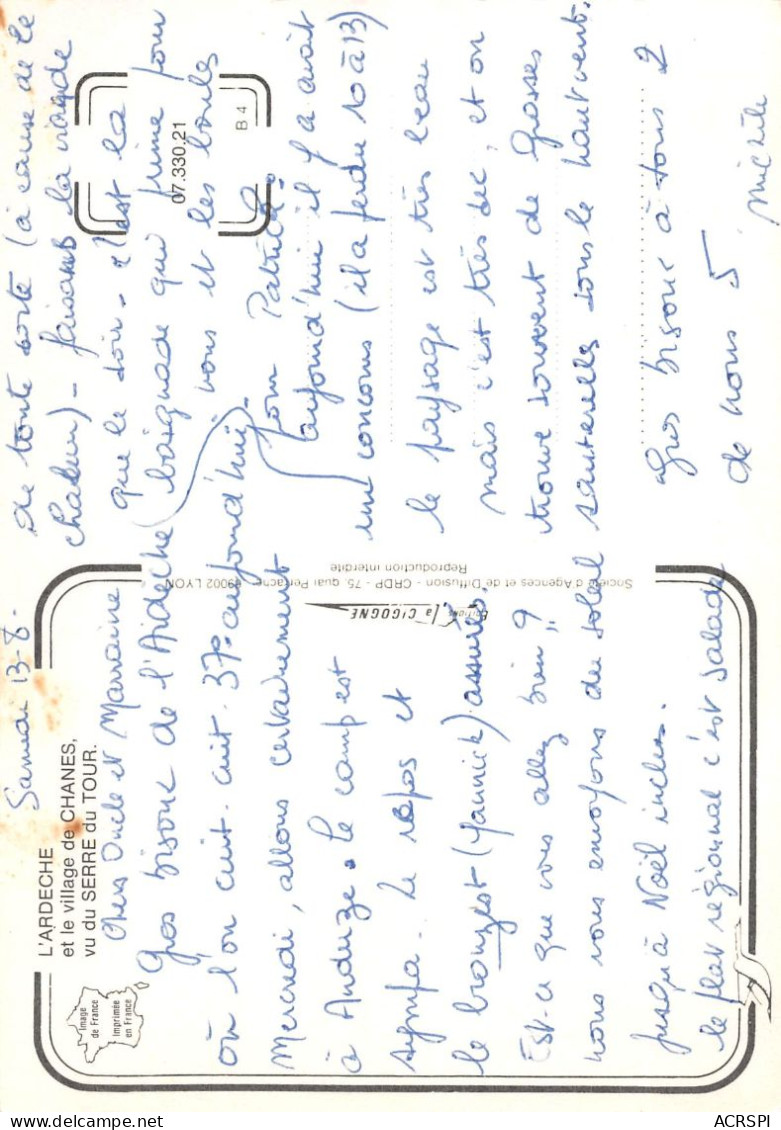 L'ARDECHE
et le village de CHANES,
vu du SERRE du TOUR.
Image
de France
Imprimée
en France
Samedi 13-8.
Chers Oncle et Marraine
Gros bisous de l'Ardèche
où l'on cuit. cuit. 37° aujourd'hui.
Mercredi, allons certainement
à Anduze. Le camp est
sympa. Le repos et
le bronzest (Yannick) assurés.
Est-ce que vous allez bien ?
nous vous envoyons du soleil
jusqu'à Noël inclus.
le plat régional c'est salade
de toute sorte (à cause de la
chaleur) - faisans la viande
que le soir - c'est la
baignade qui prime pour
vous et les boules
pour Patrick.
aujourd'hui il y a avait
un concours (il a perdu 10 à 13)
le paysage est très beau
mais c'est très sec, et on
trouve souvent de grosses
sauterelles sous le hautvent.
gros bisous à tous 2
de nous 5
Michèle
07.330.21
B 4
Editions la CIGOGNE
Société d'Agences et de Diffusion - CRDP - 75, quai Perrache - 69002 LYON
Reproduction interdite
ACRSPI